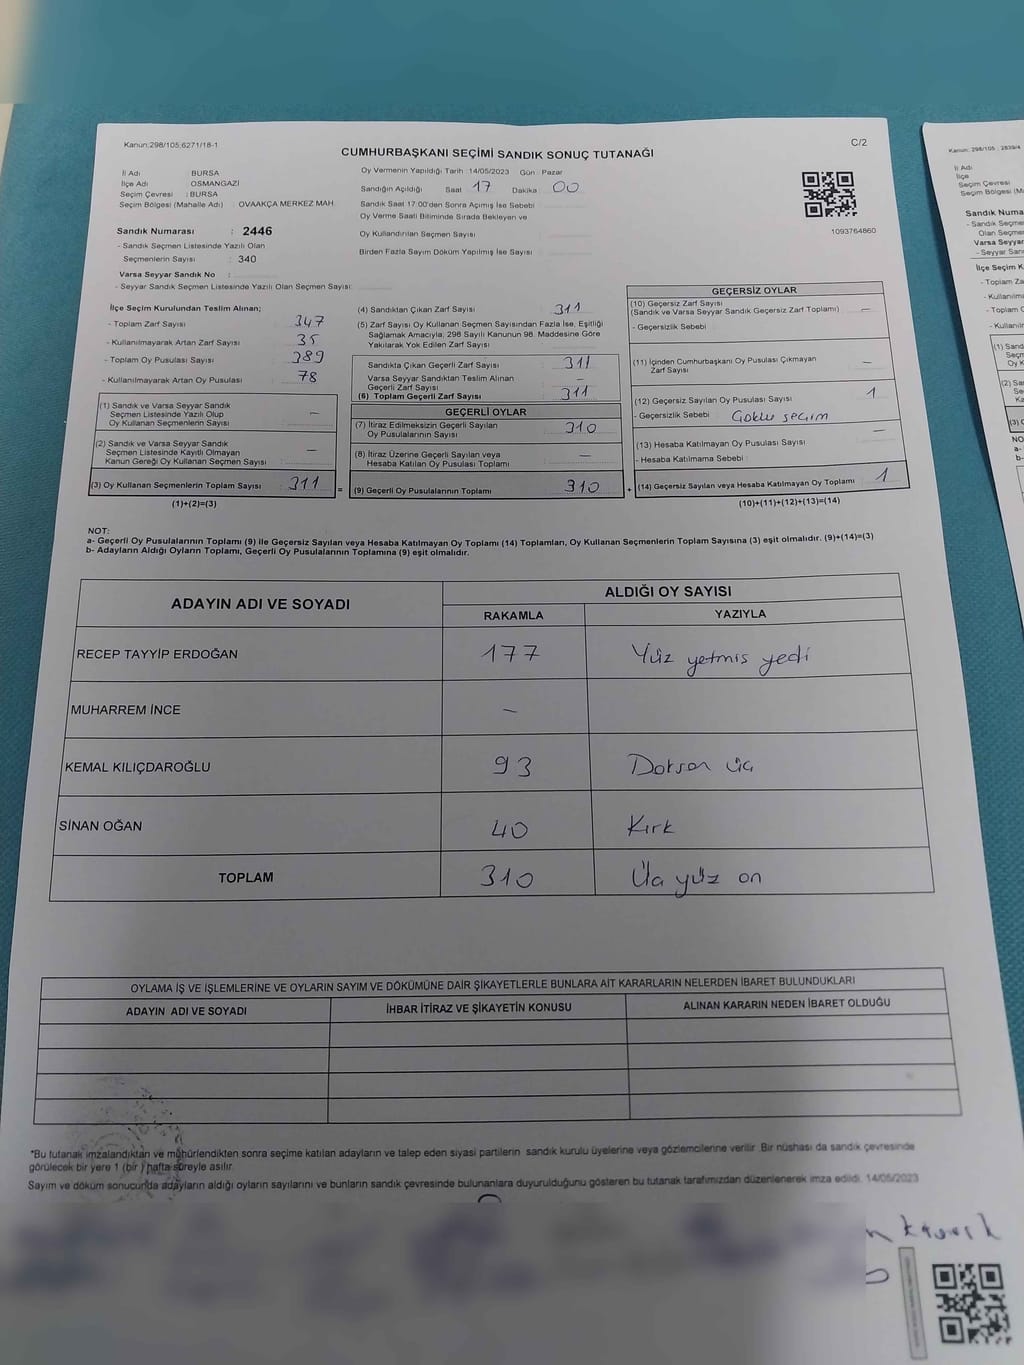 Kanun;298/105;6271/18-1
C/2
CUMHURBAŞKANI SEÇİMİ SANDIK SONUÇ TUTANAĞI
İl Adı BURSA
İlçe Adı OSMANGAZİ
Seçim Çevresi : BURSA
Seçim Bölgesi (Mahalle Adı) : OVAAKÇA MERKEZ MAH.
Sandık Numarası : 2446
- Sandık Seçmen Listesinde Yazılı Olan
Seçmenlerin Sayısı : 340
Varsa Seyyar Sandık No :
- Seyyar Sandık Seçmen Listesinde Yazılı Olan Seçmen Sayısı:
Oy Vermenin Yapıldığı Tarih :14/05/2023 Gün : Pazar
Sandığın Açıldığı Saat 17 Dakika : 00
Sandık Saat 17:00'den Sonra Açımış İse Sebebi
Oy Verme Saati Bitiminde Sırada Bekleyen ve
Oy Kullandırılan Seçmen Sayısı
Birden Fazla Sayım Döküm Yapılmış İse Sayısı
1093764860
İlçe Seçim Kurulundan Teslim Alınan;
- Toplam Zarf Sayısı 347
- Kullanılmayarak Artan Zarf Sayısı 35
- Toplam Oy Pusulası Sayısı 389
- Kullanılmayarak Artan Oy Pusulası 78
(1) Sandık ve Varsa Seyyar Sandık
Seçmen Listesinde Yazılı Olup
Oy Kullanan Seçmenlerin Sayısı —
(2) Sandık ve Varsa Seyyar Sandık
Seçmen Listesinde Kayıtlı Olmayan
Kanun Gereği Oy Kullanan Seçmen Sayısı —
(3) Oy Kullanan Seçmenlerin Toplam Sayısı 311 =
(1)+(2)=(3)
(4) Sandıktan Çıkan Zarf Sayısı : 311
(5) Zarf Sayısı Oy Kullanan Seçmen Sayısından Fazla İse, Eşitliği
Sağlamak Amacıyla; 298 Sayılı Kanunun 98. Maddesine Göre
Yakılarak Yok Edilen Zarf Sayısı
Sandıkta Çıkan Geçerli Zarf Sayısı : 311
Varsa Seyyar Sandıktan Teslim Alınan
Geçerli Zarf Sayısı —
(6) Toplam Geçerli Zarf Sayısı : 311
GEÇERLİ OYLAR
(7) İtiraz Edilmeksizin Geçerli Sayılan
Oy Pusulalarının Sayısı 310
(8) İtiraz Üzerine Geçerli Sayılan veya
Hesaba Katılan Oy Pusulası Toplamı —
(9) Geçerli Oy Pusulalarının Toplamı 310 +
GEÇERSİZ OYLAR
(10) Geçersiz Zarf Sayısı
(Sandık ve Varsa Seyyar Sandık Geçersiz Zarf Toplamı) : —
- Geçersizlik Sebebi
(11) İçinden Cumhurbaşkanı Oy Pusulası Çıkmayan
Zarf Sayısı —
(12) Geçersiz Sayılan Oy Pusulası Sayısı 1
- Geçersizlik Sebebi : Çoklu seçim
(13) Hesaba Katılmayan Oy Pusulası Sayısı —
- Hesaba Katılmama Sebebi :
(14) Geçersiz Sayılan veya Hesaba Katılmayan Oy Toplamı 1
(10)+(11)+(12)+(13)=(14)
NOT:
a- Geçerli Oy Pusulalarının Toplamı (9) ile Geçersiz Sayılan veya Hesaba Katılmayan Oy Toplamı (14) Toplamları, Oy Kullanan Seçmenlerin Toplam Sayısına (3) eşit olmalıdır. (9)+(14)=(3)
b- Adayların Aldığı Oyların Toplamı, Geçerli Oy Pusulalarının Toplamına (9) eşit olmalıdır.
ADAYIN ADI VE SOYADI
ALDIĞI OY SAYISI
RAKAMLA YAZIYLA
RECEP TAYYİP ERDOĞAN 177 Yüz yetmis yedi
MUHARREM İNCE —
KEMAL KILIÇDAROĞLU 93 Doksan üç
SİNAN OĞAN 40 Kırk
TOPLAM 310 Üç yüz on
OYLAMA İŞ VE İŞLEMLERİNE VE OYLARIN SAYIM VE DÖKÜMÜNE DAİR ŞİKAYETLERLE BUNLARA AİT KARARLARIN NELERDEN İBARET BULUNDUKLARI
ADAYIN ADI VE SOYADI İHBAR İTİRAZ VE ŞİKAYETİN KONUSU ALINAN KARARIN NEDEN İBARET OLDUĞU
*Bu tutanak imzalandıktan ve mühürlendikten sonra seçime katılan adayların ve talep eden siyasi partilerin sandık kurulu üyelerine veya gözlemcilerine verilir. Bir nüshası da sandık çevresinde
görülecek bir yere 1 (bir ) hafta süreyle asılır.
Sayım ve döküm sonucunda adayların aldığı oyların sayılarını ve bunların sandık çevresinde bulunanlara duyurulduğunu gösteren bu tutanak tarafımızdan düzenlenerek imza edildi. 14/05/2023
Kanun; 298/105 ; 2839/4
İl Adı
İlçe
Seçim Çevresi
Seçim Bölgesi (M
Sandık Numa
- Sandık Seçme
Olan Seçme
Varsa Seyyar
- Seyyar San
İlçe Seçim K
- Toplam Za
- Kullanılma
- Toplam O